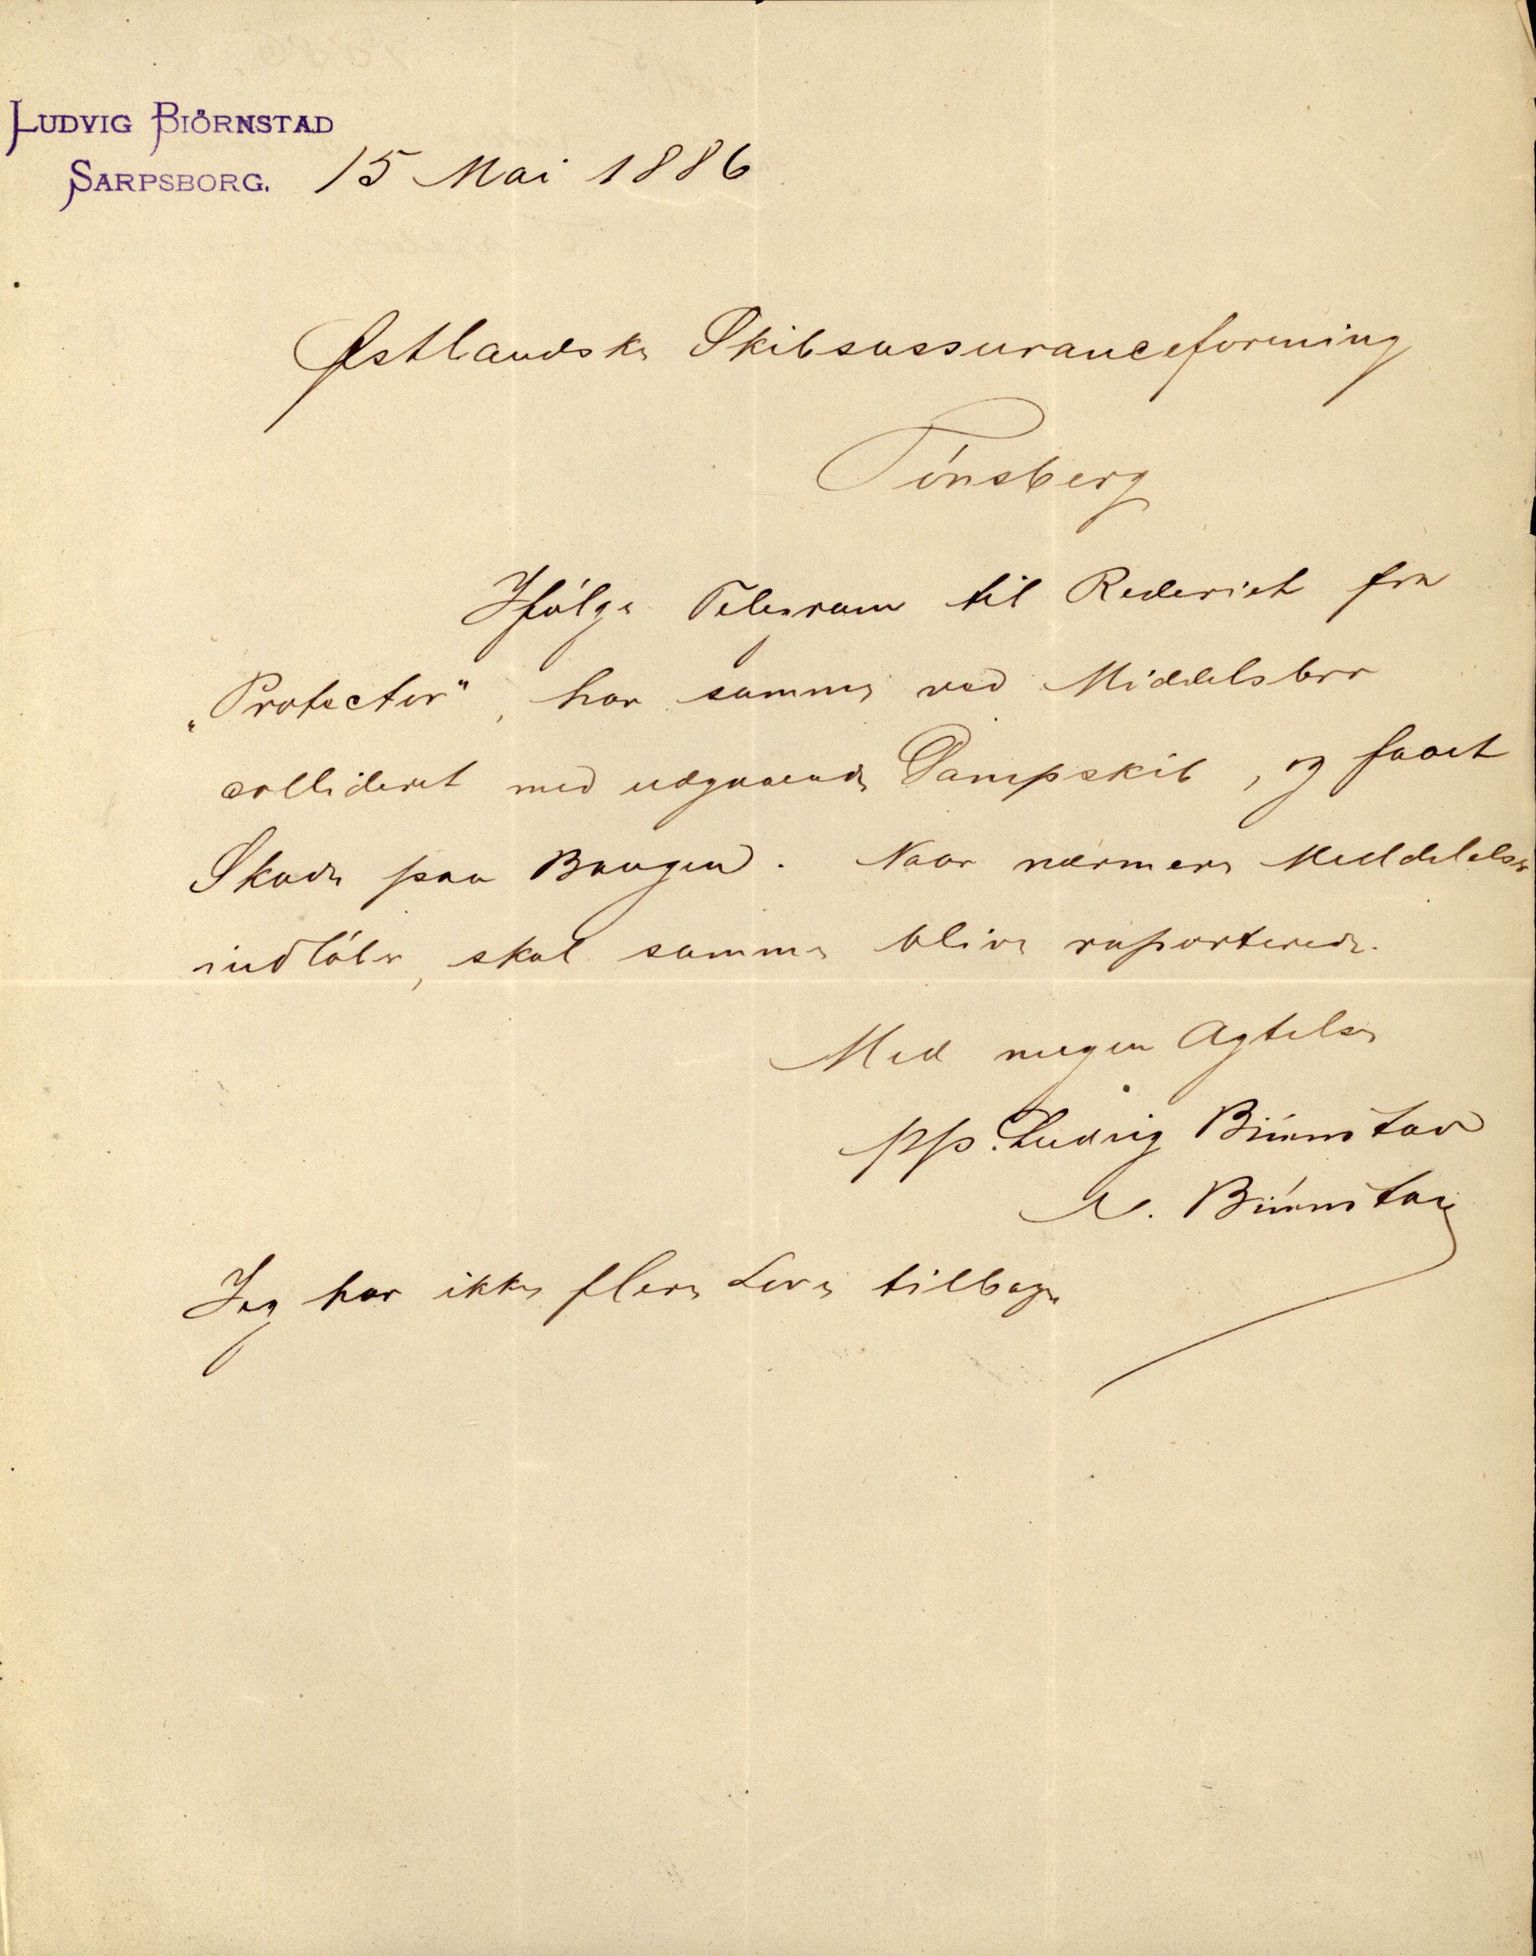 LUDVIG BIÖRNSTAD
SARPSBORG. 15 Mai 1886
Østlandske Skibsassuranceforening
Tönsberg
Ifölge Telegram til Rederiet fra
„Protector", har samme ved Middelsbro
collideret med udgaaende Dampskib, og faaet
Skade paa Baugen. Naar nærmere Meddelelse
indlöber, skal samme blive raporterede.
Med megen Agtelse
pp. Ludvig Biörnstad
N. Biörnstad
Jeg har ikke flere Love tilbage